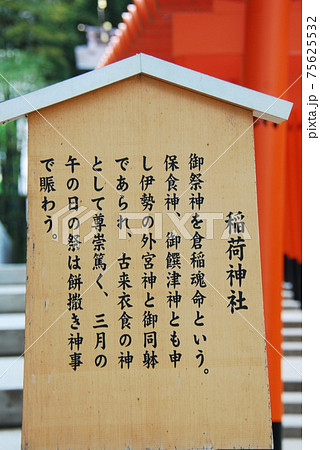 稲荷神社
御祭神を倉稲魂命という。
保食神、御饌津神とも申
し伊勢の外宮神と御同躰
であられ、古来衣食の神
として尊崇篤く、三月の
午の日の祭は餅撒き神事
で賑わう。
PIXTA
pixta.jp - 75625532